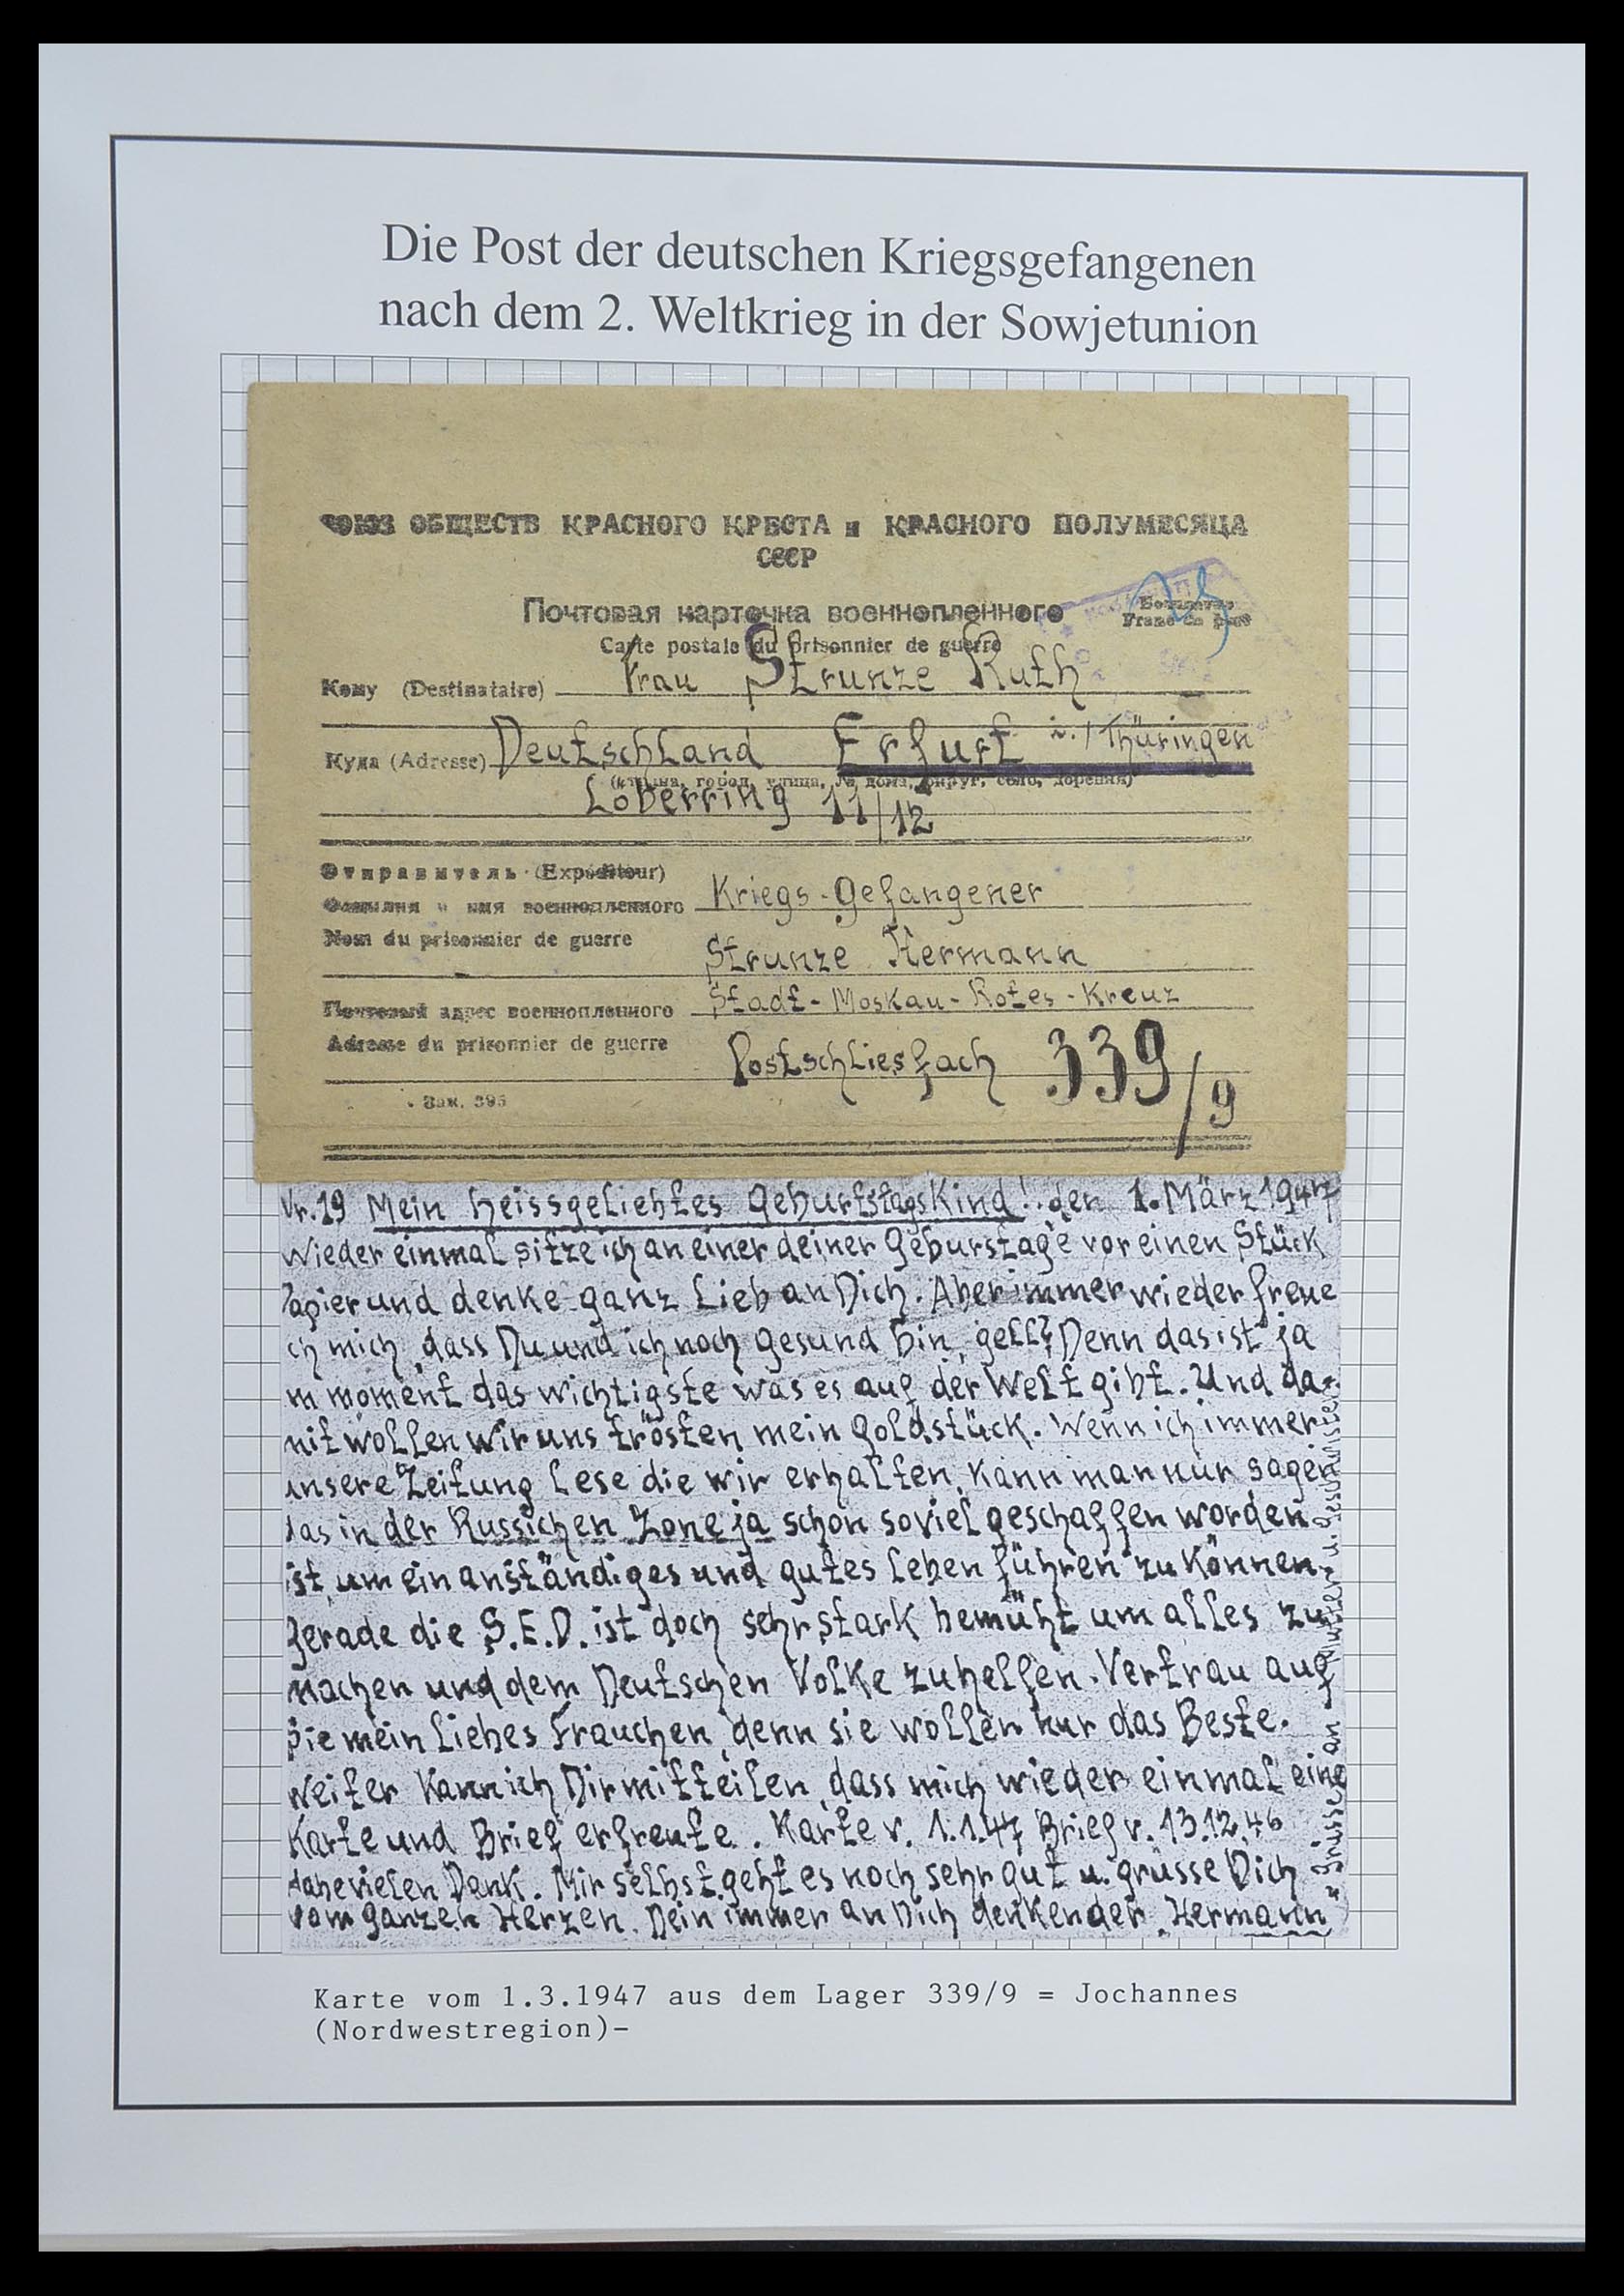 Die Post der deutschen Kriegsgefangenen
nach dem 2. Weltkrieg in der Sowjetunion
СОЮЗ ОБЩЕСТВ КРАСНОГО КРЕСТА и КРАСНОГО ПОЛУМЕСЯЦА
СССР
Почтовая карточка военнопленного
Бесплатно
Franc de port
Carte postale du prisonnier de guerre
Кому (Destinataire) Frau Strunze Ruth
Куда (Adresse) Deutschland Erfurt i./Thüringen
(страна, город, улица, № дома, округ, село, деревня)
Löberring 11/12
Отправитель (Expéditeur)
Фамилия и имя военнопленного Kriegs-Gefangener
Nom du prisonnier de guerre Strunze Hermann
Почтовый адрес военнопленного Stadt-Moskau-Rotes-Kreuz
Adresse du prisonnier de guerre Postschliesfach 339/9
Зак. 395
Nr.19 Mein heissgeliebtes Geburtstagskind! den 1. März 1947
Wieder einmal sitze ich an einer deiner Geburstage vor einen Stück
Papier und denke ganz lieb an Dich. Aber immer wieder freue
ich mich, dass Du und ich noch gesund bin, gell? Denn das ist ja
im moment das wichtigste was es auf der Welt gibt. Und da-
mit wollen wir uns trösten mein Goldstück. Wenn ich immer
unsere Zeitung lese die wir erhalten, kann man nur sagen
das in der Russichen Zone ja schon soviel geschaffen worden
ist, um ein anständiges und gutes Leben führen zu können.
Gerade die S.E.D. ist doch sehr stark bemüht um alles zu
machen und dem Deutschen Volke zuhelfen. Vertrau auf
Sie mein liebes Frauchen, denn sie wollen nur das Beste.
Weiter kann ich Dir mitteilen, dass mich wieder einmal eine
Karte und Brief erfreute. Karte v. 1.1.47 Brief v. 13.12.46
habe vielen Dank. Mir selbst geht es noch sehr gut u. grüsse Dich
vom ganzen Herzen. Dein immer an Dich denkender Hermann
Grüsse an Mutter u. Geschwister
Karte vom 1.3.1947 aus dem Lager 339/9 = Jochannes
(Nordwestregion)-